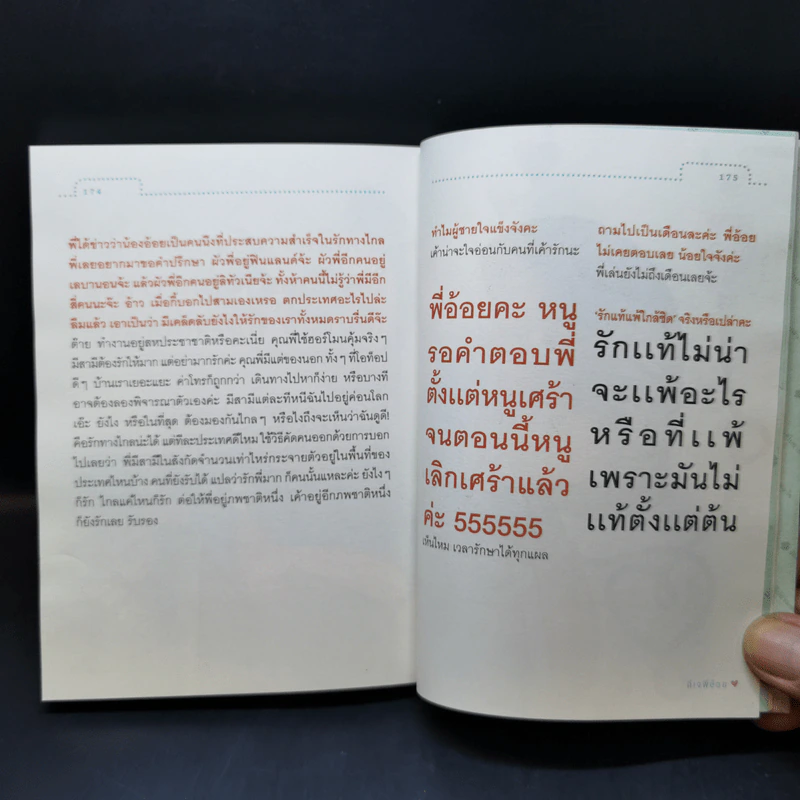 174
พี่ได้ข่าวว่าน้องอ้อยเป็นคนนึงที่ประสบความสำเร็จในรักทางไกล
พี่เลยอยากมาขอคำปรึกษา ผัวพี่อยู่ฟินแลนด์จ้ะ ผัวพี่อีกคนอยู่
เลบานอนจ้ะ แล้วผัวพี่อีกคนอยู่ลิทัวเนียจ้ะ ทั้งห้าคนนี้ไม่รู้ว่าพี่มีอีก
สี่คนนะจ๊ะ อ้าว เมื่อกี้บอกไปสามเองเหรอ ตกประเทศอะไรไปล่ะ
ลืมแล้ว เอาเป็นว่า มีเคล็ดลับยังไงให้รักของเราทั้งหมดราบรื่นดีจ๊ะ
ด้าย ทำงานอยู่สหประชาชาติหรือคะเนี่ย คุณพี่ใช้ฮอร์โมนคุ้มจริงๆ
มีสามีต้องรักให้มาก แต่อย่ามากรักค่ะ คุณพี่มีแต่ของนอก ทั้งๆ ที่โอท็อป
ดีๆ บ้านเราเยอะแยะ ค่าโทรก็ถูกกว่า เดินทางไปหาก็ง่าย หรือบางที
อาจต้องลองพิจารณาตัวเองค่ะ มีสามีแต่ละทีหนีฉันไปอยู่ค่อนโลก
เอ๊ะ ยังไง หรือในที่สุด ต้องมองกันไกลๆ หรือไงถึงจะเห็นว่าฉันดูดี!
คือรักทางไกลน่ะได้ แต่ทีละประเทศดีไหม ใช้วิธีคัดคนออกด้วยการบอก
ไปเลยว่า พี่มีสามีในสังกัดจำนวนเท่าไหร่กระจายตัวอยู่ในพื้นที่ของ
ประเทศไหนบ้าง คนที่ยังรับได้ แปลว่ารักพี่มาก ก็คนนั้นแหละค่ะ ยังไงๆ
ก็รัก ไกลแค่ไหนก็รัก ต่อให้พี่อยู่ภพชาติหนึ่ง เค้าอยู่อีกภพชาติหนึ่ง
ก็ยังรักเลย รับรอง
175
ทำไมผู้ชายใจแข็งจังคะ
เค้าน่าจะใจอ่อนกับคนที่เค้ารักนะ
พี่อ้อยคะ หนู
รอคำตอบพี่
ตั้งแต่หนูเศร้า
จนตอนนี้หนู
เลิกเศร้าแล้ว
ค่ะ 555555
เห็นไหม เวลารักษาได้ทุกแผล
ถามไปเป็นเดือนละค่ะ พี่อ้อย
ไม่เคยตอบเลย น้อยใจจังค่ะ
พี่เล่นยังไม่ถึงเดือนเลยจ้ะ
"รักแท้แพ้ใกล้ชิด" จริงหรือเปล่าคะ
รักแท้ไม่น่า
จะแพ้อะไร
หรือที่แพ้
เพราะมันไม่
แท้ตั้งแต่ต้น
ดีเจพี่อ้อย